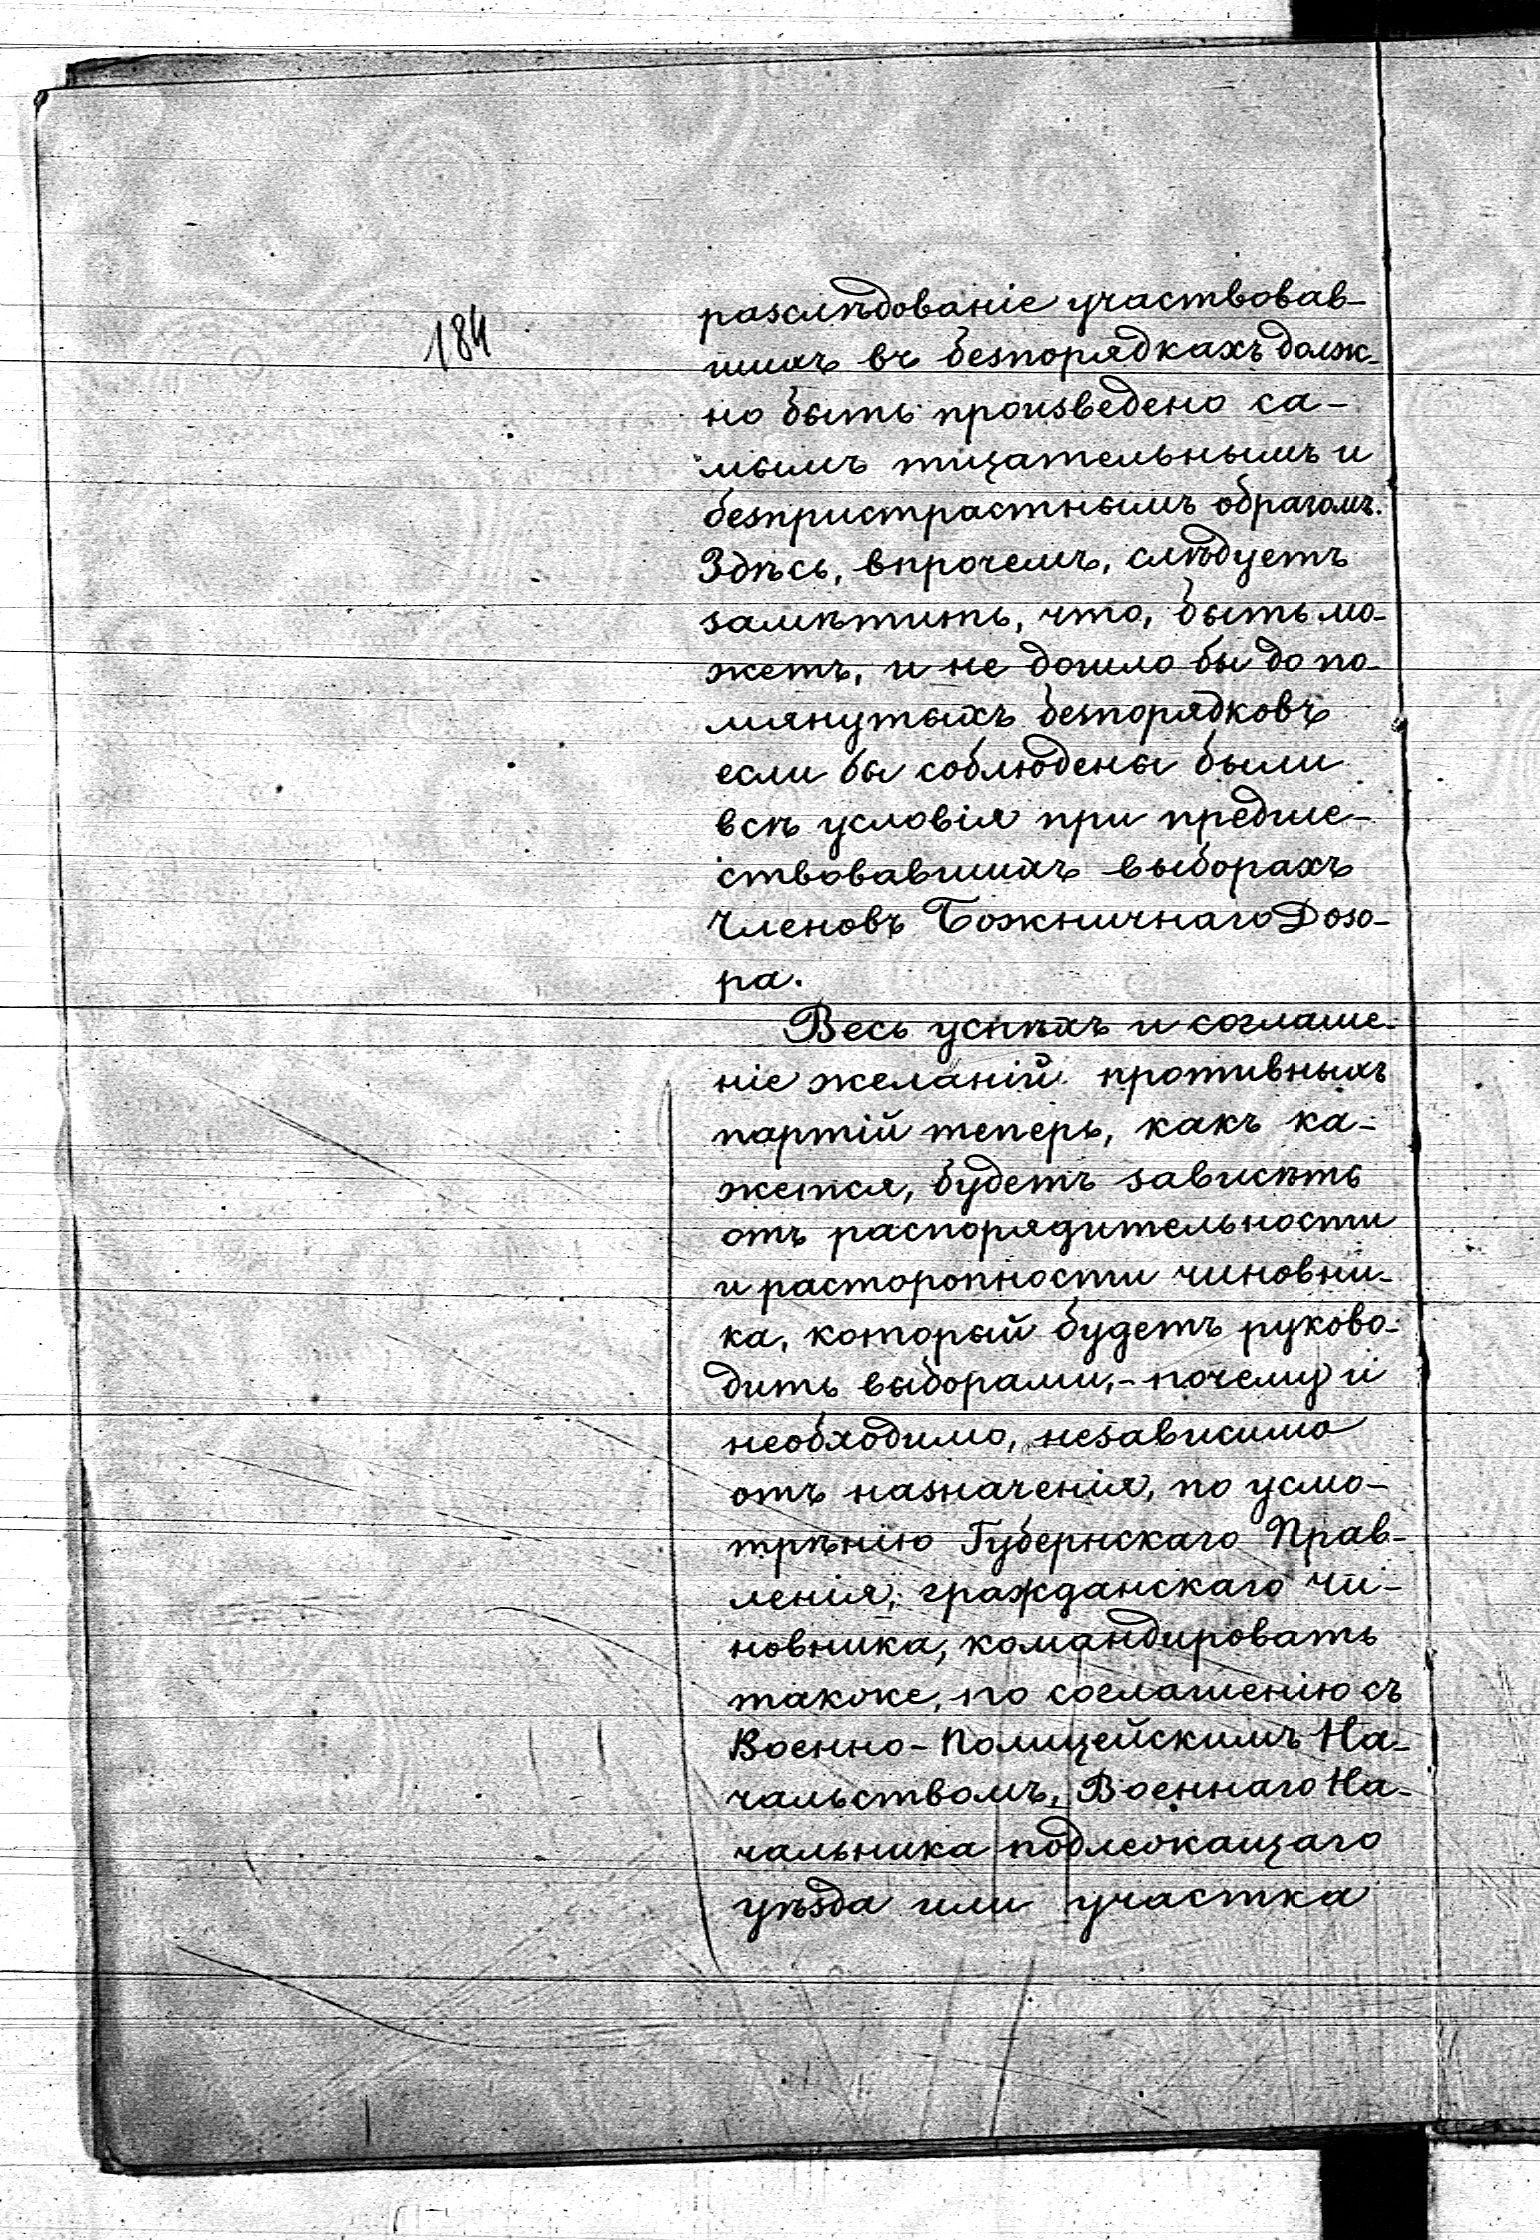 184
разслѣдованіе участвовав-
шихъ въ безпорядкахъ долж-
но быть произведено са-
мымъ тщательнымъ и
безпристрастнымъ образомъ.
Здѣсь, впрочемъ, слѣдуетъ
замѣтить, что, быть мо-
жетъ, и не дошло бы до по-
мянутыхъ безпорядковъ
если бы соблюдены были
всѣ условія при предше-
ствовавшихъ выборахъ
Членовъ Божничнаго Дозо-
ра.
Весь успѣхъ и соглаше-
ніе желаній противныхъ
партій теперь, какъ ка-
жется, будетъ зависѣть
отъ распорядительности
и расторопности чиновни-
ка, который будетъ руково-
дить выборами,- почему и
необходимо, независимо
отъ назначенія, по усмо-
трѣнію Губернскаго Прав-
ленія, гражданскаго чи-
новника, командировать
также, по соглашенію съ
Военно-Полицейскимъ На-
чальствомъ, Военнаго На-
чальника подлежащаго
уѣзда или участка